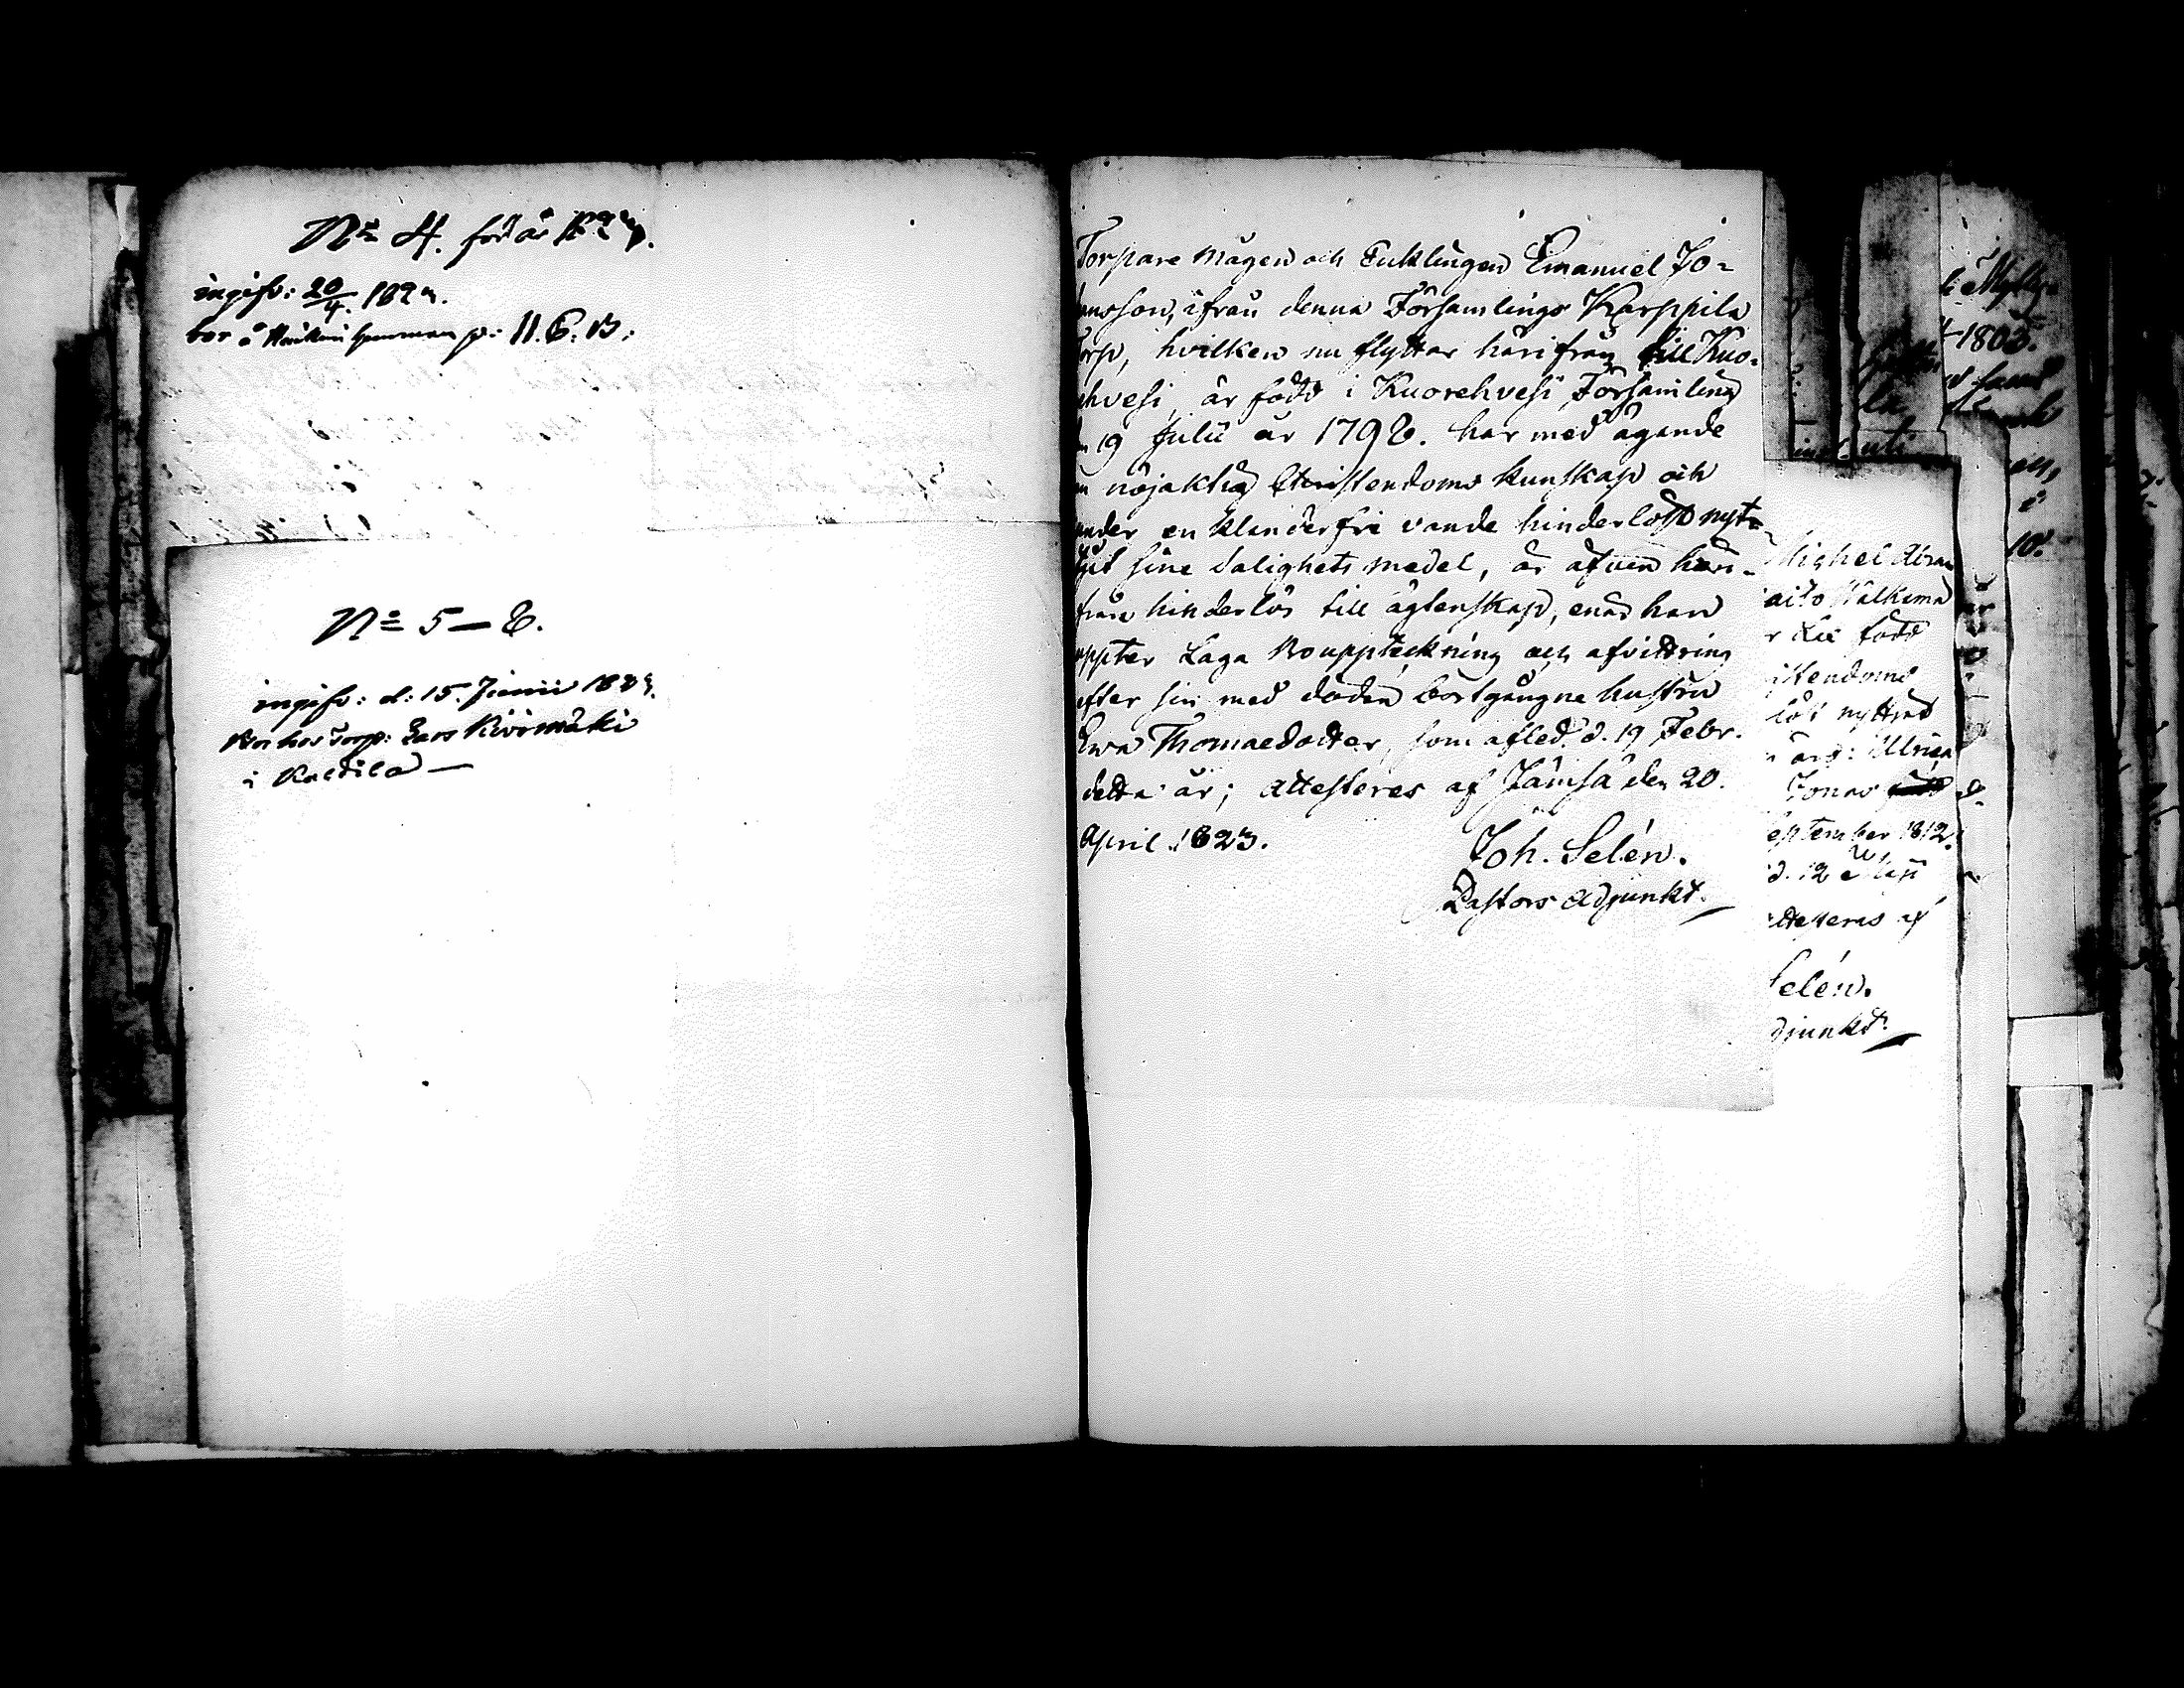 No 4. för år 1823.
ingifv: 20/4. 1823.
bor å hemman p: 11. 6. B.
No 5 — 8.
ingifv: d: 15. Junii 1823.
Bor hos Torp: Lars Kivimäki
i Kaldila —
Torpare mågen och Enklingen Emanuel Jo-
hansson, ifrån denna Församlings Karppila
Torp, hvilken nu flyttar härifrån till Kuo-
rehvesi, är född i Kuorehvesi Församling
den 19 Julii år 1798. har med ägande
en nöjaktig Christendoms kunskap och
under en klanderfri vandel hinderlöst nyt-
tjat sine Salighets medel, är äfven häri-
från hinderlös till ägtenskap, enär han
uppter Laga Bouppteckning och afvittring
efter sin med döden bortgångne hustru
Ewa Thomaedotter, som afled. d. 19 Febr.
detta år; attesteres af Jämsä den 20.
April 1823.
Joh. Selén.
Pastors Adjunkt.
Michel Abra
aito Wälkemä
född
istendoms
löst nyttjat
Ulrica
Jonas d.
eptember 1812.
d. 12
attesteres af
Selén.
djunkt.
1803.